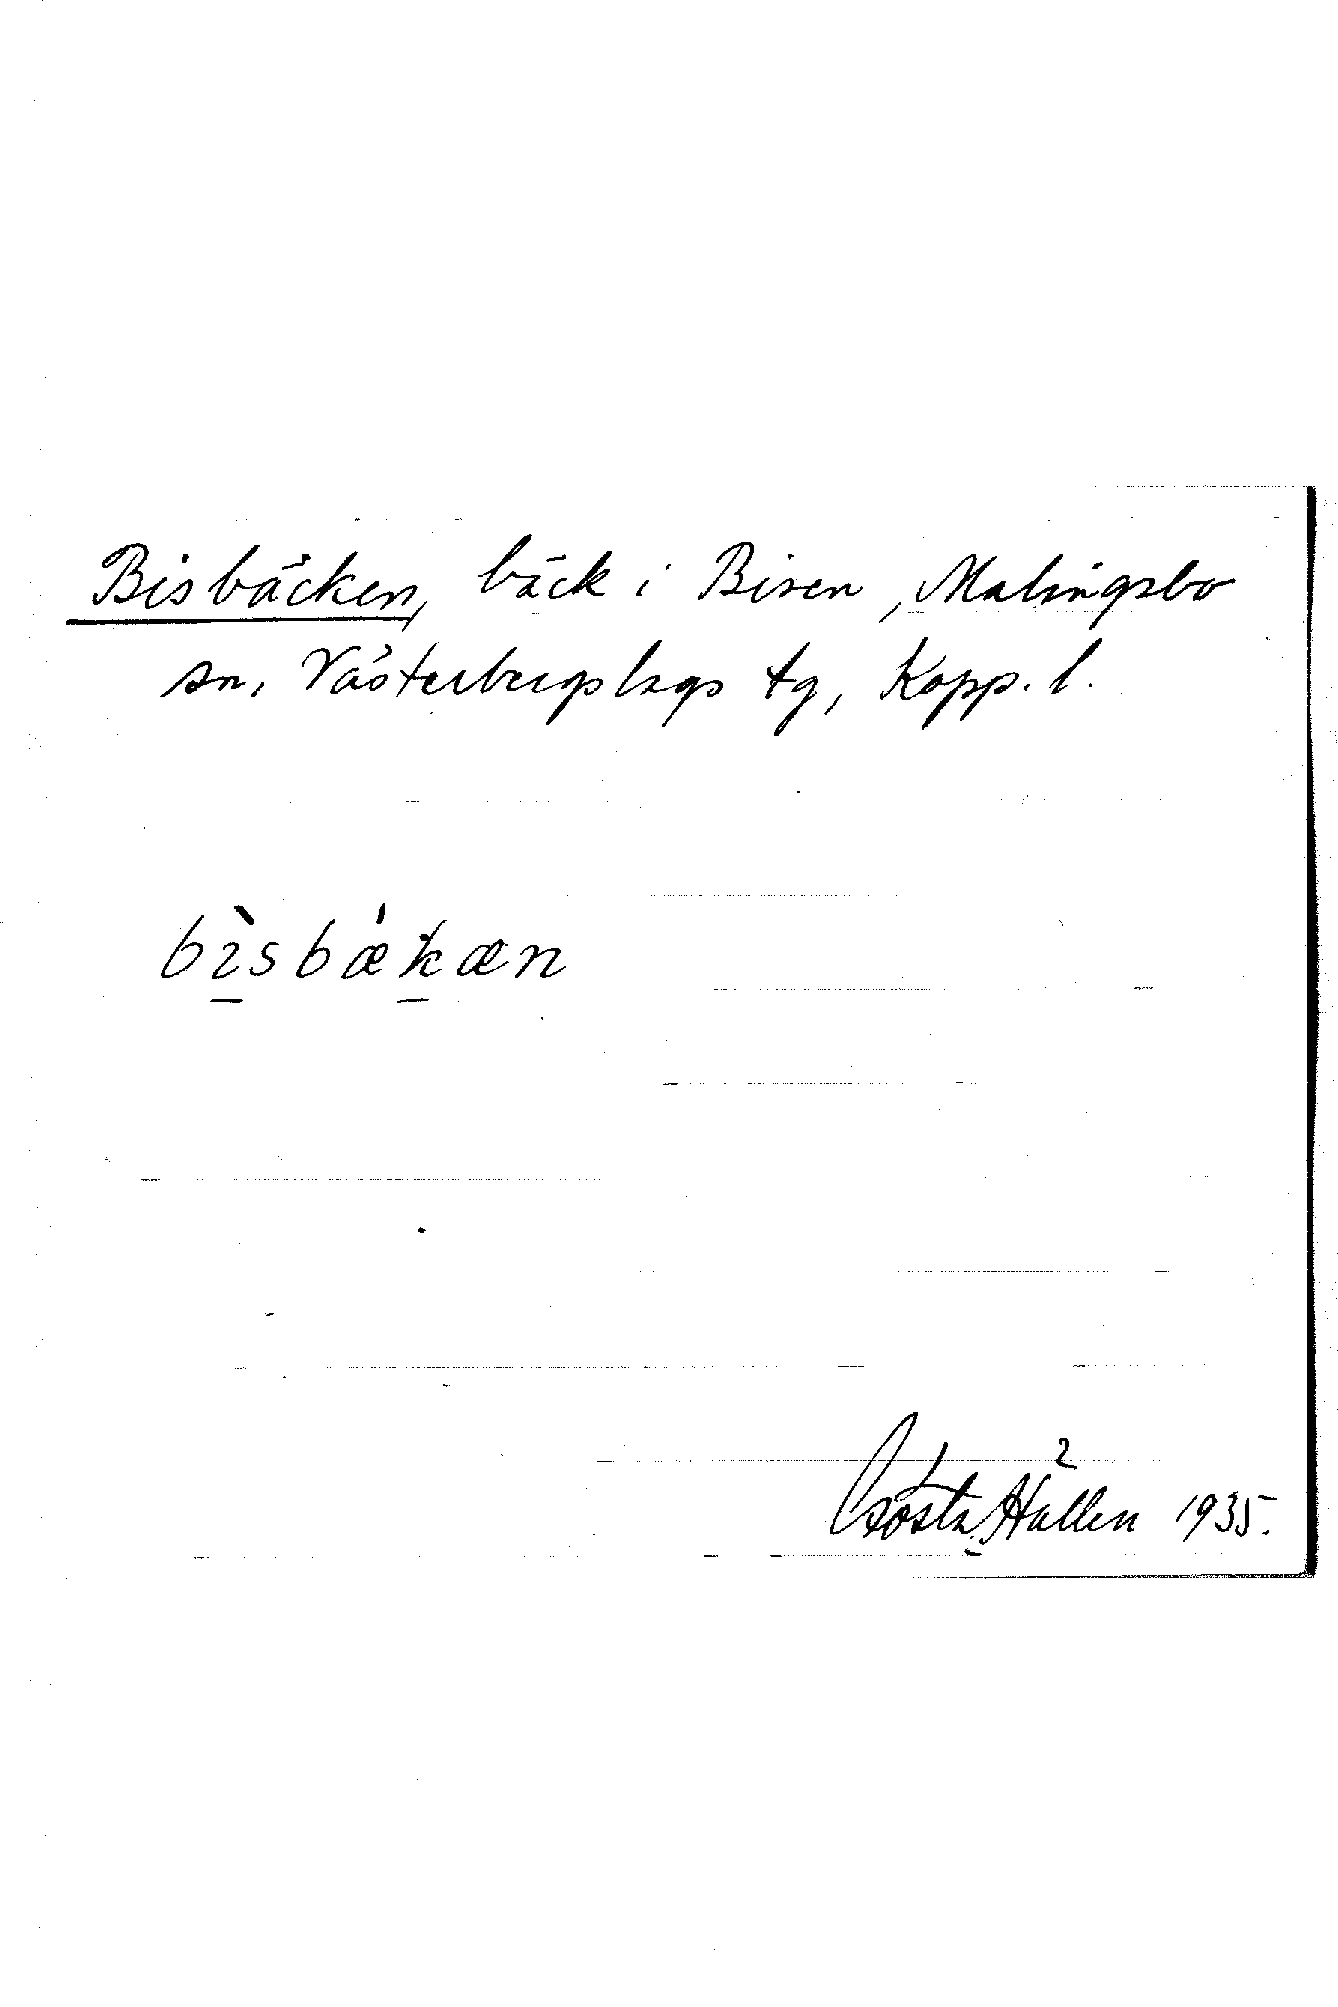 Bisbäcken, bäck i Bisen, Malingsbo
sn, Västerbergslags tg, Kopp. l.
bìsbækæn
Gösta Hallen 1935.